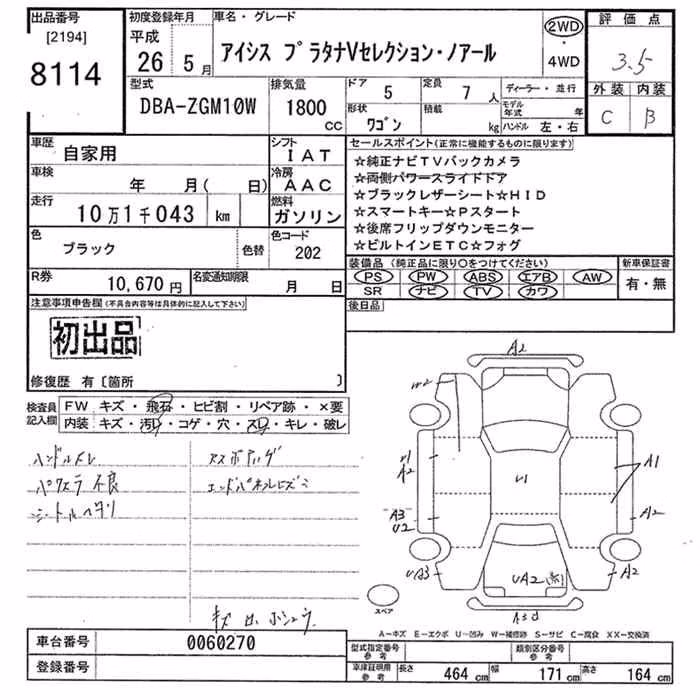 出品番号
[2194]
8114
初度登録年月
平成
26 5月
車名・グレード
アイシス プラタナVセレクション・ノアール
2WD
・
4WD
評価点
3.5
外装 内装
C B
型式
DBA-ZGM10W
排気量
1800
CC
ドア
5
定員
7 人
形状
ワゴン
積載
kg
ディーラー・並行
モデル年式 年
ハンドル 左・右
車歴
自家用
シフト
IAT
車検
年 月( 日)
冷房
AAC
走行
10万1千043 km
燃料
ガソリン
色
ブラック
色替
色コード
202
R券
10,670円
名変通知期限
月 日
セールスポイント(正常に機能するものに限ります)
☆純正ナビTVバックカメラ
☆両側パワースライドドア
☆ブラックレザーシート☆HID
☆スマートキー☆Pスタート
☆後席フリップダウンモニター
☆ビルトインETC☆フォグ
装備品(純正品に限り○をつけてください)
PS PW ABS エアB AW
SR ナビ TV カワ
新車保証書
有・無
後日品
注意事項申告欄(不具合内容等は具体的に記入して下さい)
初出品
修復歴 有〔箇所 〕
検査員記入欄
FW キズ・飛石・ヒビ割・リペア跡・×要
内装 キズ・汚レ・コゲ・穴・スレ・キレ・破レ
ハンドルスレ
パワスラ不良
シートルヘタリ
エンドパネルヒズミ
A2
W2
U1
A2
A3
U2
UA3
U1
A1
A2
A2
UA2
スペア
A-キズ E-エクボ U-凹み W-補修跡 S-サビ C-腐食 XX-交換済
車台番号
0060270
登録番号
型式指定番号
参考
類別区分番号
参考
車庫証明用
参考
長さ 464 cm 幅 171 cm 高さ 164 cm